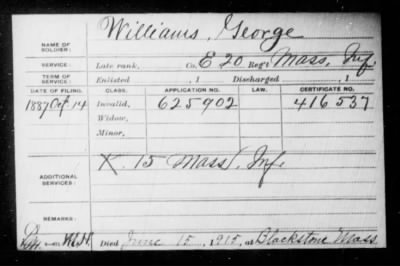 Williams, George
NAME OF SOLDIER:
SERVICE: Late rank, Co. E 20 Reg't Mass. Inf.
TERM OF SERVICE: Enlisted , 1 Discharged , 1
DATE OF FILING. CLASS. APPLICATION NO. LAW. CERTIFICATE NO.
1887 Oct 14 Invalid, 625902 416537
Widow,
Minor,
ADDITIONAL SERVICES: K. 15 Mass. Inf.
REMARKS:
Died June 15, 1915, at Blackstone Mass.